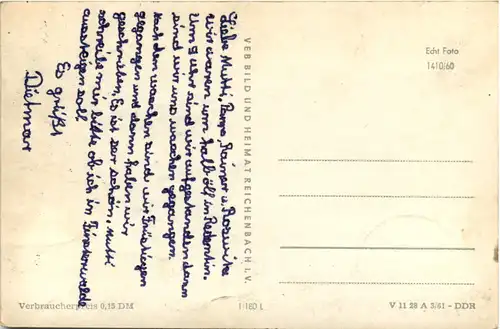 Liebe Mutti, Papa, Rainer u. Roswita
wir waren um halb ölf in Redentin.
Um 7 uhr sind wir aufgestanden dann
sind wir uns waschen gegangen.
Nach den waschen sind wir Früstügen
gegangen und dann haben wir
geschrieben. Es ist ser schön. Mutti
schreibe mir bitte ob ich in Fürstenwalde
aussteigen soll.
Es grüßt
Dietmar
VEB BILD UND HEIMAT REICHENBACH I. V.
Echt Foto
1410/60
Verbraucherpreis 0,15 DM
V 11 28 A 3/61 - DDR